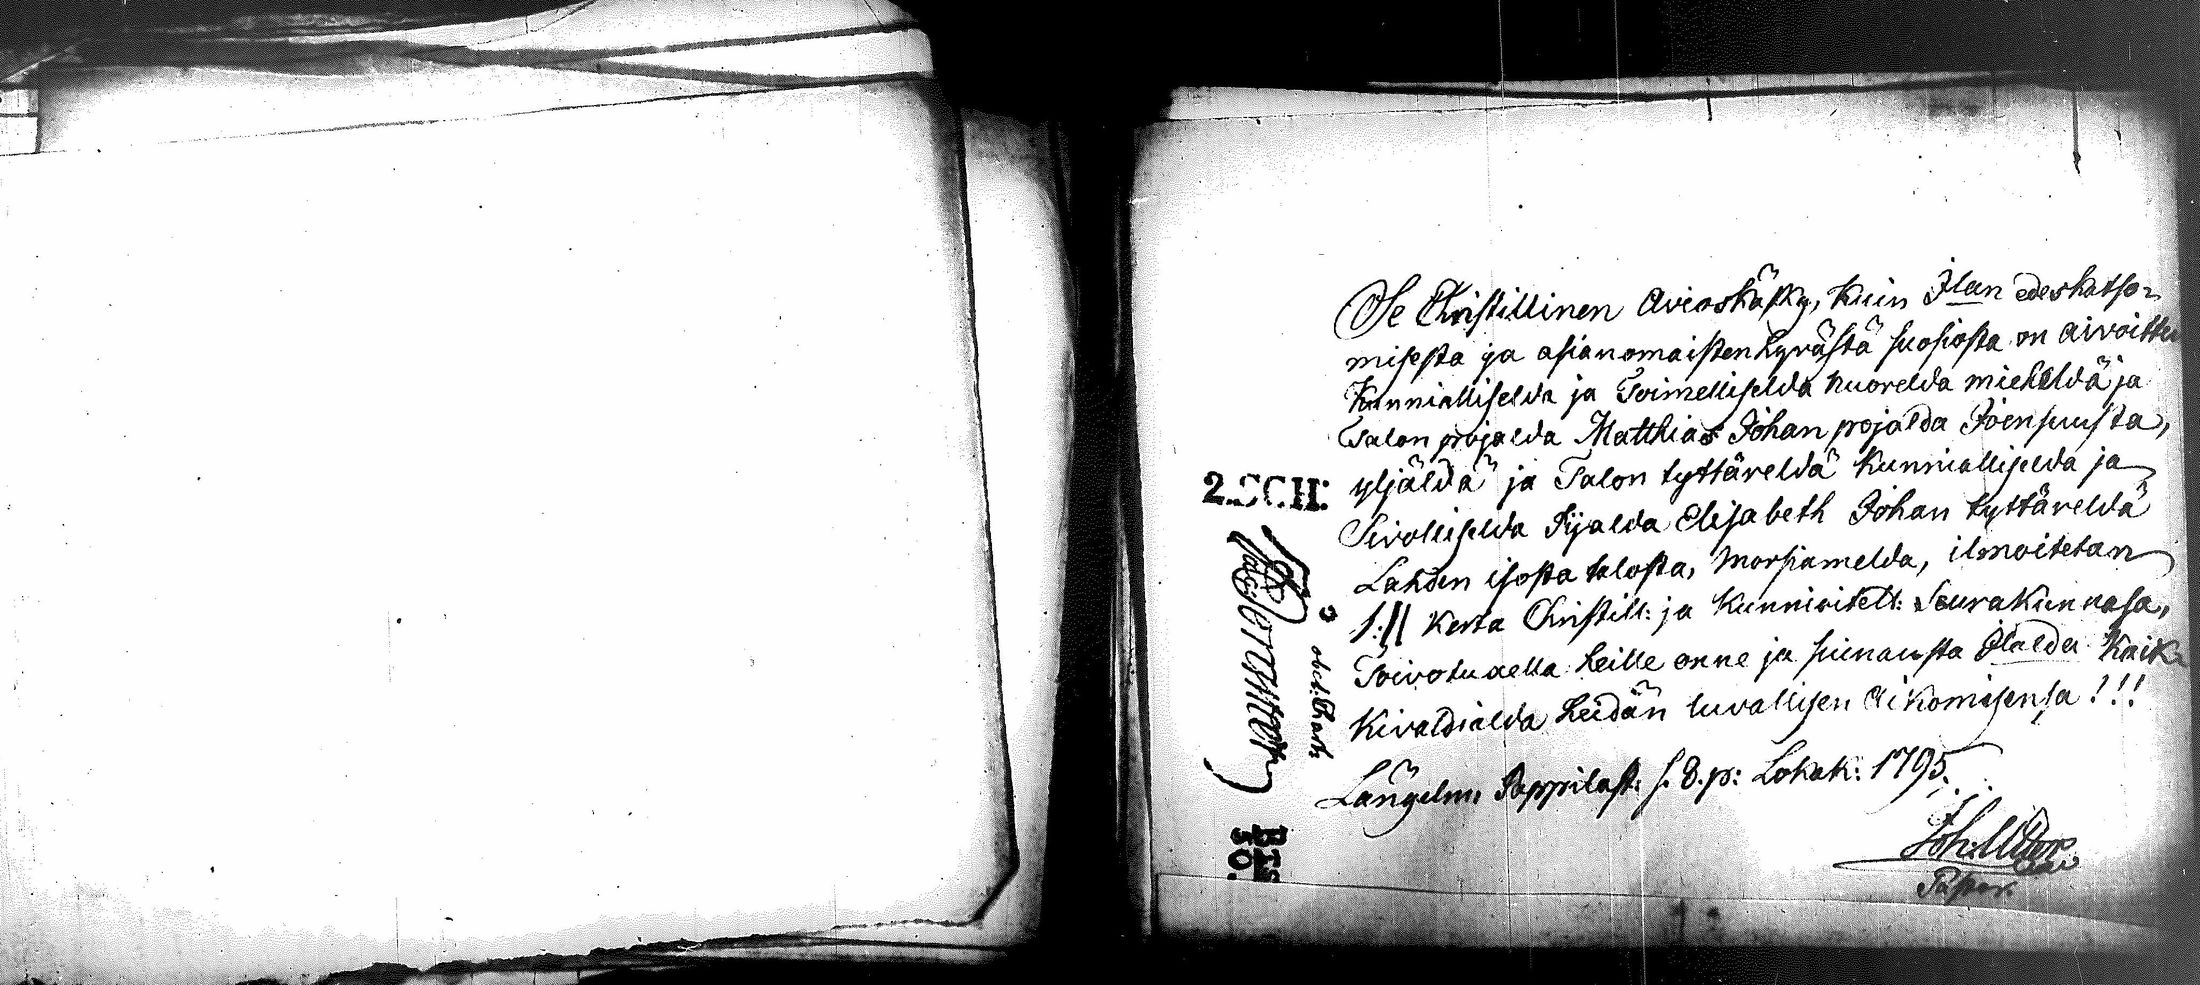 Se Christillinen Avioskäsky, kuin Jlan edeskatso-
misesta ja asianomaisten hyvästä suosiosta on aivoittu
Kunnialliselda ja Toimelliselda nuorelda mieheldä ja
Talon pojalda Matthias Johan pojalda Joensuusta,
yljäldä ja Talon tyttäreldä kunnialliselda ja
Sivolliselda Pijalda Elisabeth Johan tyttäreldä
Lahden isosta talosta, morsiamelda, ilmoitetan
1:|| kerta Christill: ja kunnioitett: Seurakunnasa,
Toivotuxella heille onne ja siunausta Jlalda kaik-
kivaldialda heidän luvallisen aikomisensa!!!
Längelm: Pappilast: s. 8. p: Lokak: 1795.
Joh:
Pastor.
2.SCH:
obet: Chart:
BTS
SO.